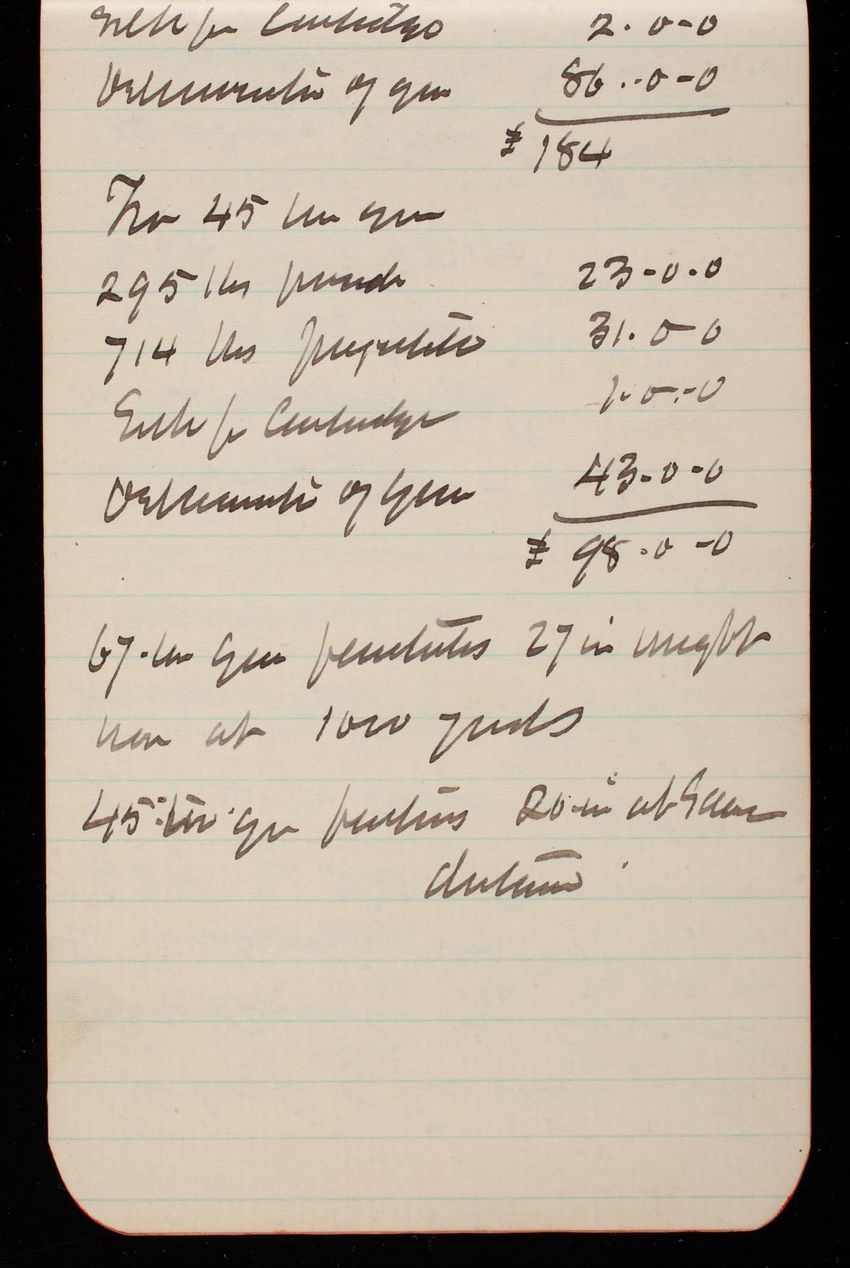 Silk for Cartridges 2-0-0
Deterioration of gun 86-0-0
£ 184
For 45 ton gun
295 lbs powder 23-0-0
714 lbs projectile 31-0-0
Silk for Cartridge 1-0-0
Deterioration of Gun 43-0-0
£ 98-0-0
67-ton Gun penetrates 27 in wrought
iron at 1000 yards
45-ton gun penetrates 20 in at same
distance